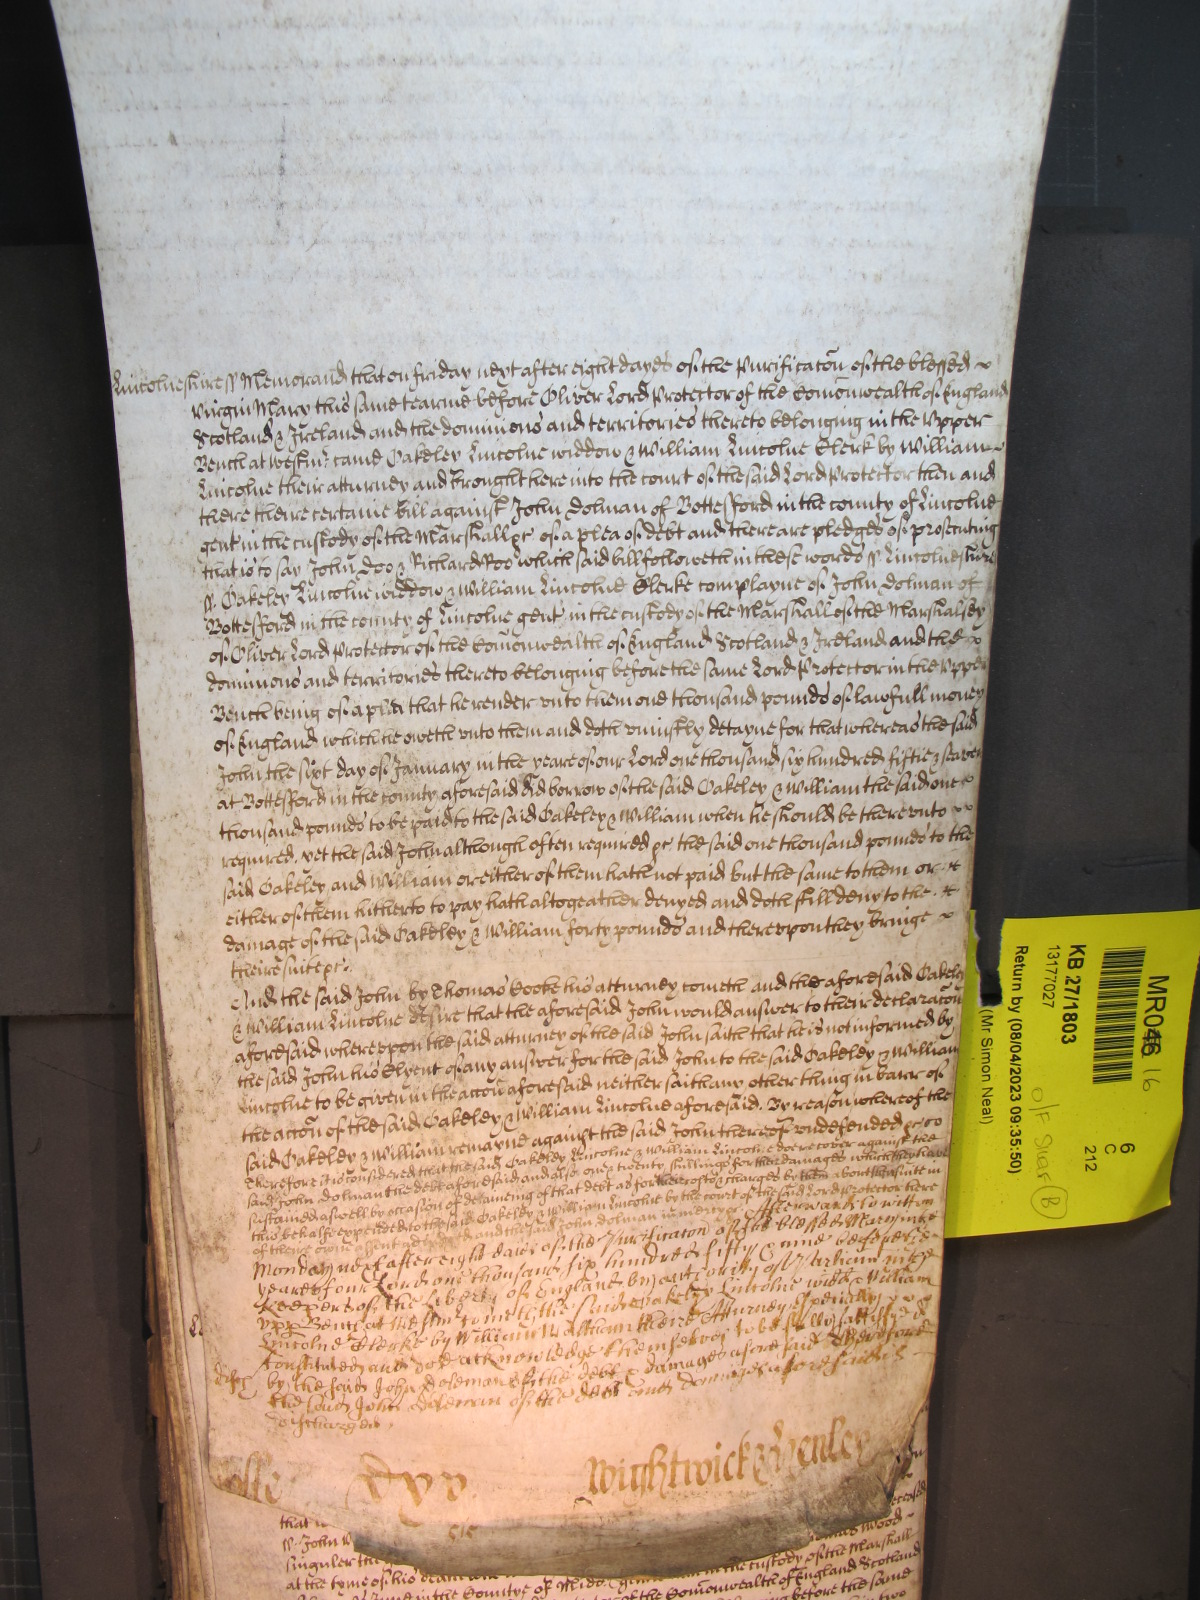 Lincolneshire ss Memorand that on friday next after eight dayes of the Purificacon of the blessed
virgin Mary this same tearme before Oliver Lord Protector of the Comonwealth of England
Scotland & Ireland and the dominions and territories thereto belonging in the Vpper
Bench at Westmr came Oakeley Lincolne widdow & William Lincolne Clerk by William
Lincolne their atturney and brought here into the court of the said Lord Protector then and
there theire certaine bill against John Dolman of Bottesford in the county of Lincolne
gent in the custody of the Marshall &c of a plea of debt and there are pledges of prosecuting
that is to say John Doo & Richard Roo which said bill followeth in these words ss Lincolneshire
ss. Oakeley Lincolne widdow & William Lincolne Clerke complayne of John Dolman of
Bottesford in the county of Lincolne gent in the custody of the Marshall of the Marshalsey
of Oliver Lord Protector of the Comonwealth of England Scotland & Ireland and the
dominions and territories thereto belonging before the same Lord Protector in the vpper
Bench being of a plea that he render vnto them one thousand pounds of lawfull money
of England which he oweth vnto them and doth vniustly detayne for that whereas the said
John the sixt day of January in the yeare of our Lord one thousand six hundred fiftie & seaven
at Bottesford in the county aforesaid did borrow of the said Oakeley & William the said one
thousand pounds to be paid to the said Oakeley & William when he should be therevnto
required. yet the said John although often required &c the said one thousand pounds to the
said Oakeley and William or either of them hath not paid but the same to them or
either of them hitherto to pay hath altogeather denyed and doth still deny to the
damage of the said Oakeley & William forty pounds and therevpon they bringe
theire suite &c.
And the said John by Thomas Cooke his atturney cometh and the aforesaid Oakeley
& William Lincolne desire that the aforesaid John would answer to their declaracon
aforesaid wherevpon the said atturney of the said John saith that he is not informed by
the said John his Clyent of any answer for the said John to the said Oakeley & William
Lincolne to be given in the accon aforesaid neither saith any other thing in barr of
the accon of the said Oakeley & William Lincolne aforesaid. By reason whereof the
said Oakeley & William remayne against the said John thereof vndefended &c so
Therefore it is considered that the said Oakeley Lincolne & William Lincolne doe recover against the
said John Dolman the debt aforesaid and also one & twenty shillings for their damages which they have
sustained aswell by occasion of detaineing of that debt as for their costs & charges by them about their suite in
this behalfe expended to the said Oakeley & William Lincolne by the court of the said Lord Protector here
of theire owne assent adiudged and the said John Dolman in mercy &c Afterwards to witt on
Monday next after eight daies of the Purificacon of the blessed Mary in the
yeare of our Lord one thousand six hundred fifty & came before the
Keepers of the Liberty of England by authority of Parliament in the
vpp Bench at Westmr the said Oakeley Lincolne widd & William
Lincolne Clerke by William Waltham theire Atturney specially
constituted and did acknowledge themselves to be fully satisfyed
by the said John Doleman of the debt & damages aforesaid Therefore
the said John Doleman of the debt and damages aforesaid is
discharged.
disch
Wightwick & Henley
MR046 16
KB 27/1803
13177027
Return by (08/04/2023 09:35:50)
(Mr Simon Neal)
6
C
212
O/F Shar B
that
w. John
singuler the
at the tyme of his
in the custody of the Marshall
of the Comonwealth of England Scotland
before the same